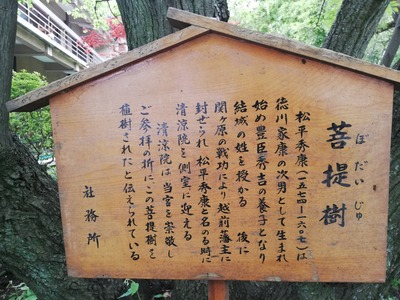 菩提樹
ぼだいじゅ
松平秀康(一五七四―一六〇七)は
徳川家康の次男として生まれ
始め豊臣秀吉の養子となり
結城の姓を授かる 後に
関ヶ原の戦功により越前藩主に
封せられ 松平秀康と名のる時に
清涼院を側室に迎える
清涼院は当宮を崇敬し
ご参拝の折にこの菩提樹を
植樹されたと伝えられている
社務所